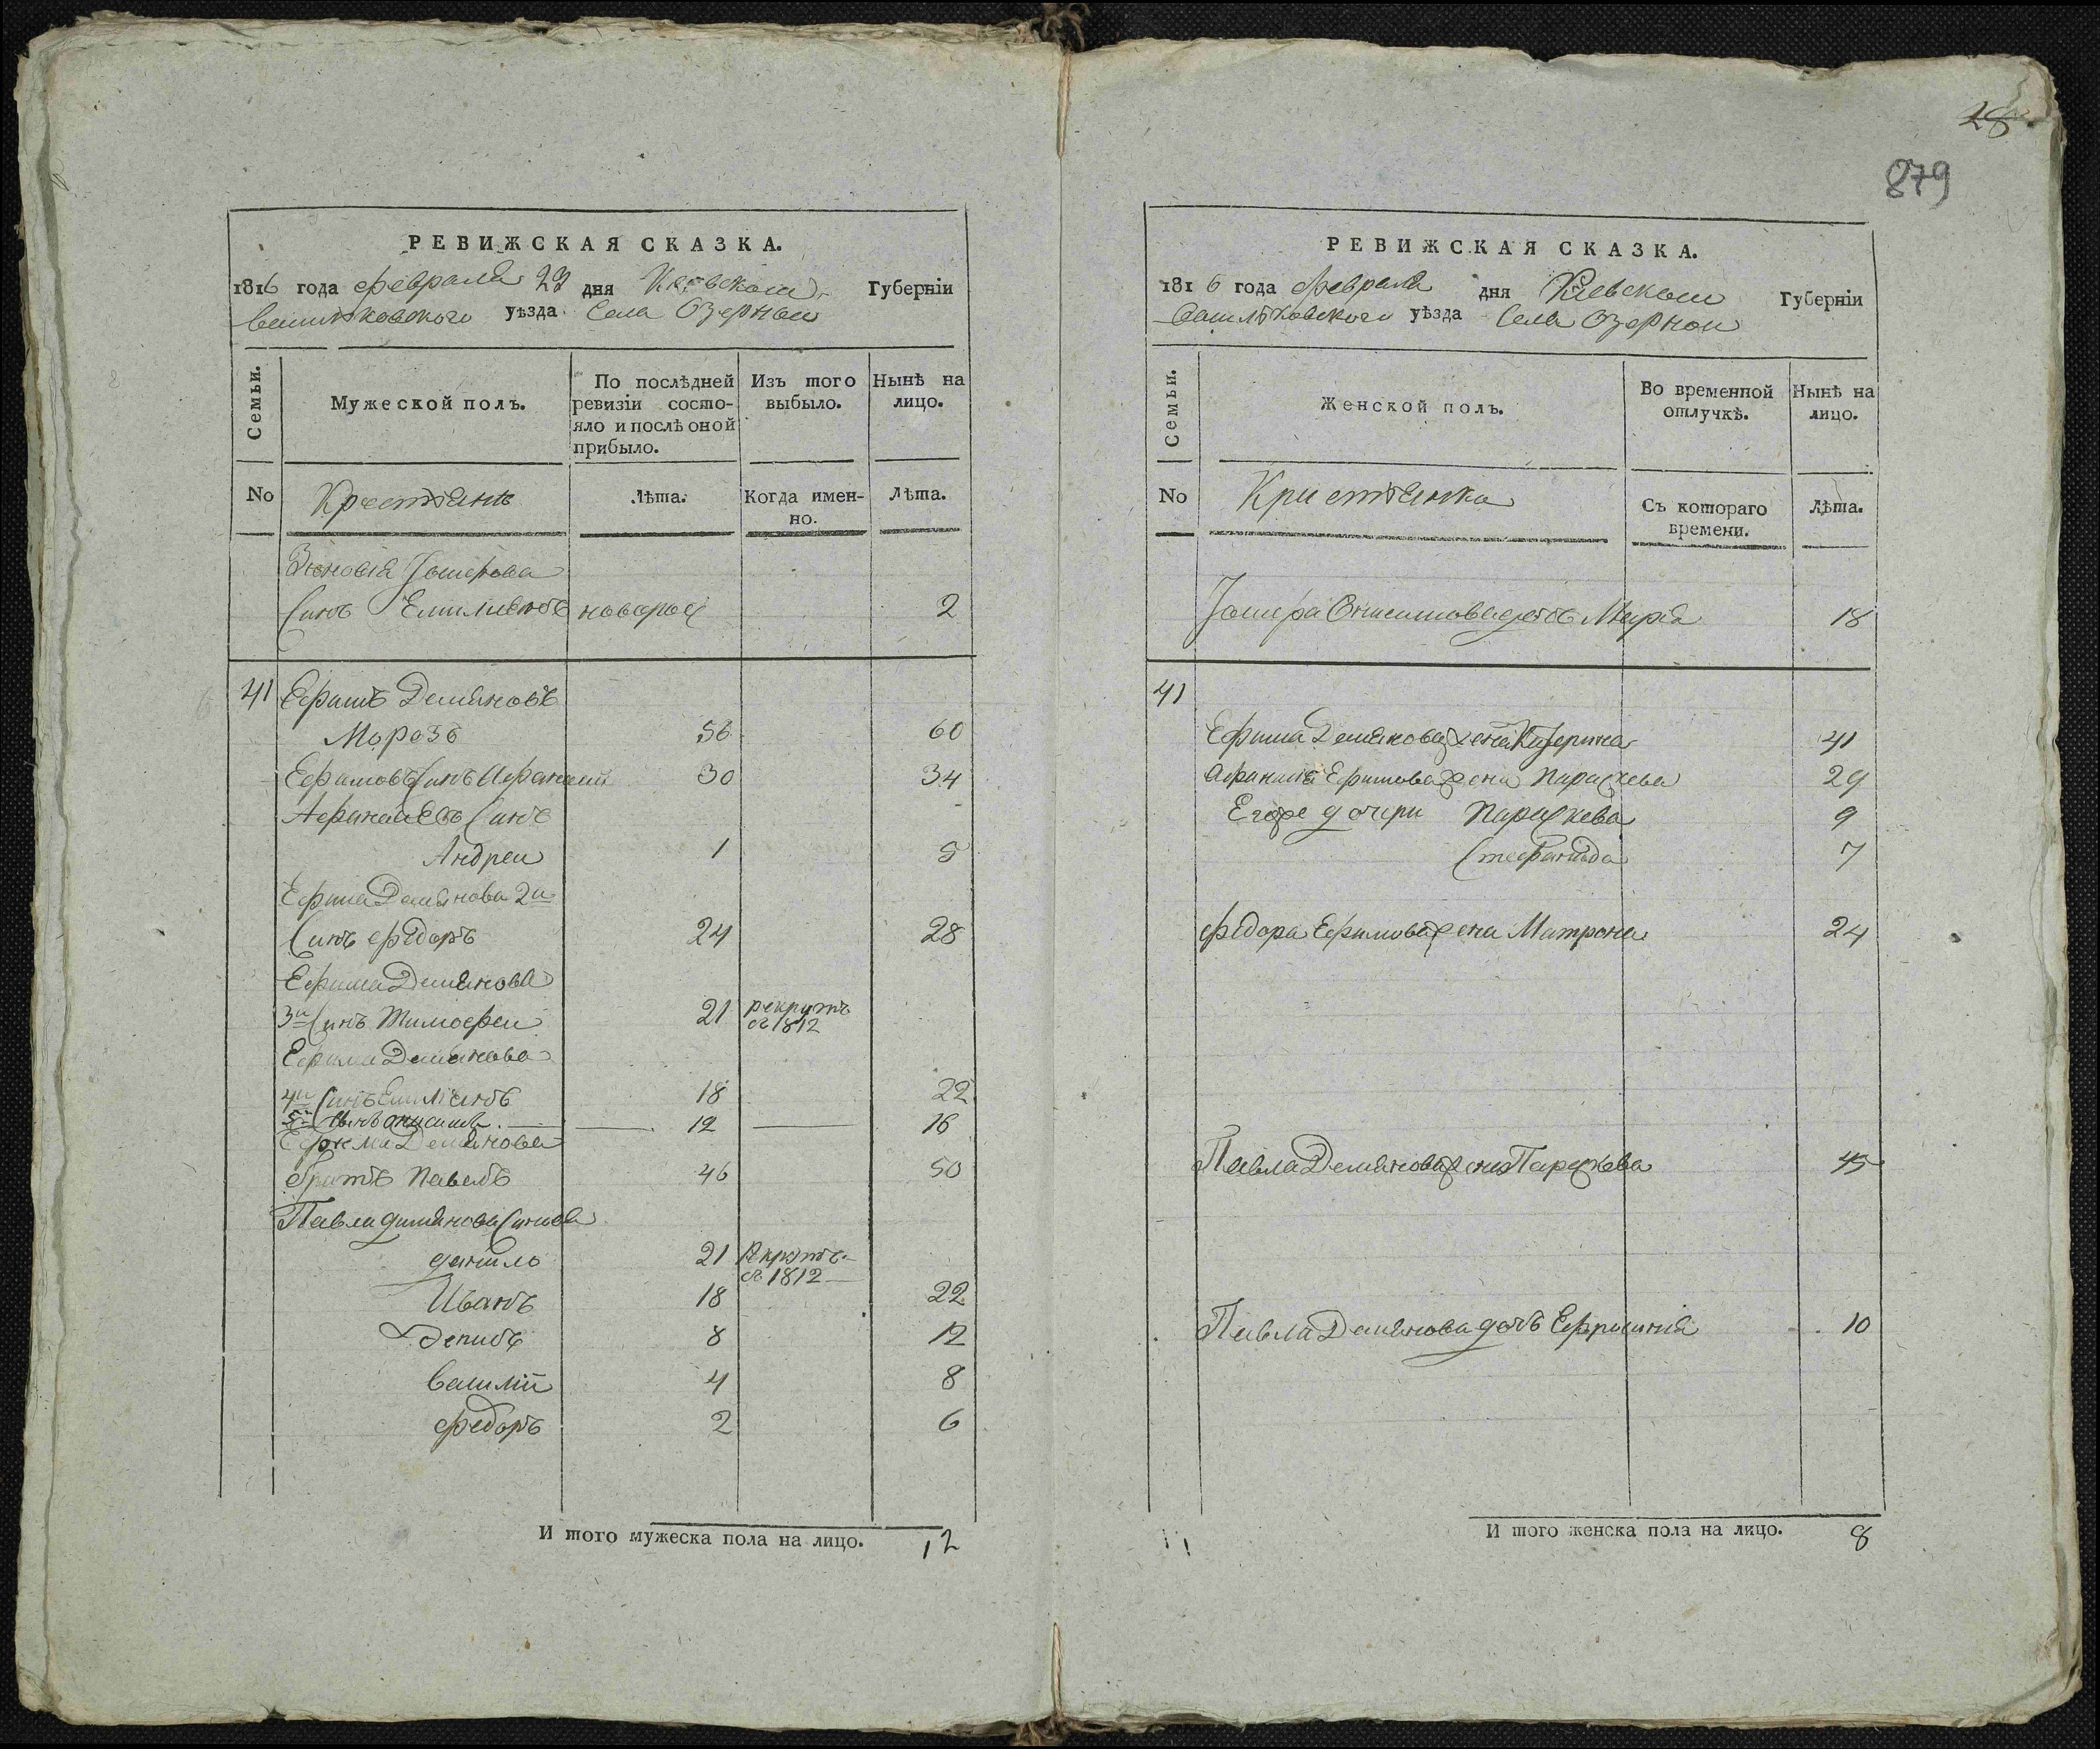 РЕВИЖСКАЯ СКАЗКА.
1816 года февраля 23 дня Киевской Губерніи
Васильковского уѣзда Села Озерной
Семьи.
Мужеской полъ.
По послѣдней ревизіи состо-
яло и послѣ оной
прибыло.
Изъ того
выбыло.
Нынѣ на
лицо.
No
Крестяне
Лѣта.
Когда имен-
но.
Лѣта.
Зѣновія
Синъ Емилиянъ новорож 2
41 Ефимъ Демяновъ
Морозъ 56 60
Ефимовъ Синъ Афанасий 30 34
Афанасиевъ Синъ
Андреи 1 5
Ефима Демянова 2и
Синъ Федоръ 24 28
Ефима Демянова
3и Синъ Тимофеи 21 рекрутъ
въ 1812
Ефима Демянова
4и Синъ Емилиянъ 18 22
5и Синъ Онисимъ 12 16
Ефима Демянова
братъ Павелъ 46 50
Павла Димянова Синова
данило 21 Рекрутъ
въ 1812
Иванъ 18 22
Денисъ 8 12
василій 4 8
федоръ 2 6
И того мужеска пола на лицо. 12
28
879
РЕВИЖСКАЯ СКАЗКА.
1816 года февраля дня Киевской Губерніи
Васильковского уѣзда Села Озерной
Семьи.
Женской полъ.
Во временной
отлучкѣ.
Нынѣ на
лицо.
No
Кристянка
Съ котораго
времени.
Лѣта.
Онисимова дочь Мария 18
41
Ефима Демянова жена Катерина 41
Афанасия Ефимова жена Параскева 29
Егоже дочери Параскева 9
Стефанида 7
Федора Ефимова жена Матрона 24
Павла Демянова жена Параскева 45
Павла Демянова дочь Ефросиния 10
И того женска пола на лицо. 8